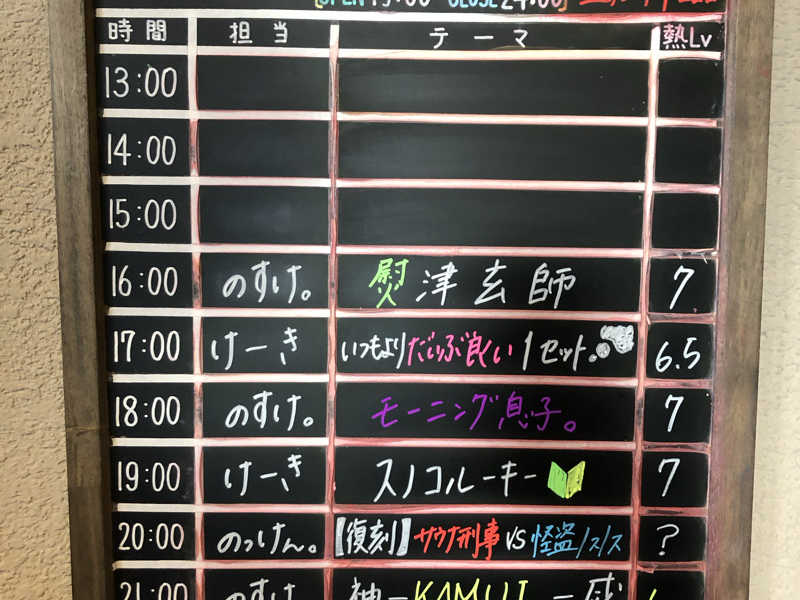 OPEN 13:00 CLOSE 24:00
時間 担当 テーマ 熱Lv
13:00
14:00
15:00
16:00 のすけ。 熨津玄師 7
17:00 けーき いつもよりだいぶ良い1セット。 6.5
18:00 のすけ。 モーニング息子。 7
19:00 けーき スノコルーキー 7
20:00 のっけん。 【復刻】サウナ刑事VS怪盗ノスノス ?
21:00 のすけ